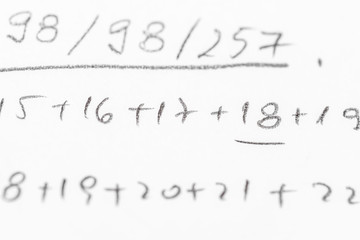 98/98/257.
15+16+17+18+19
8+19+20+21+22